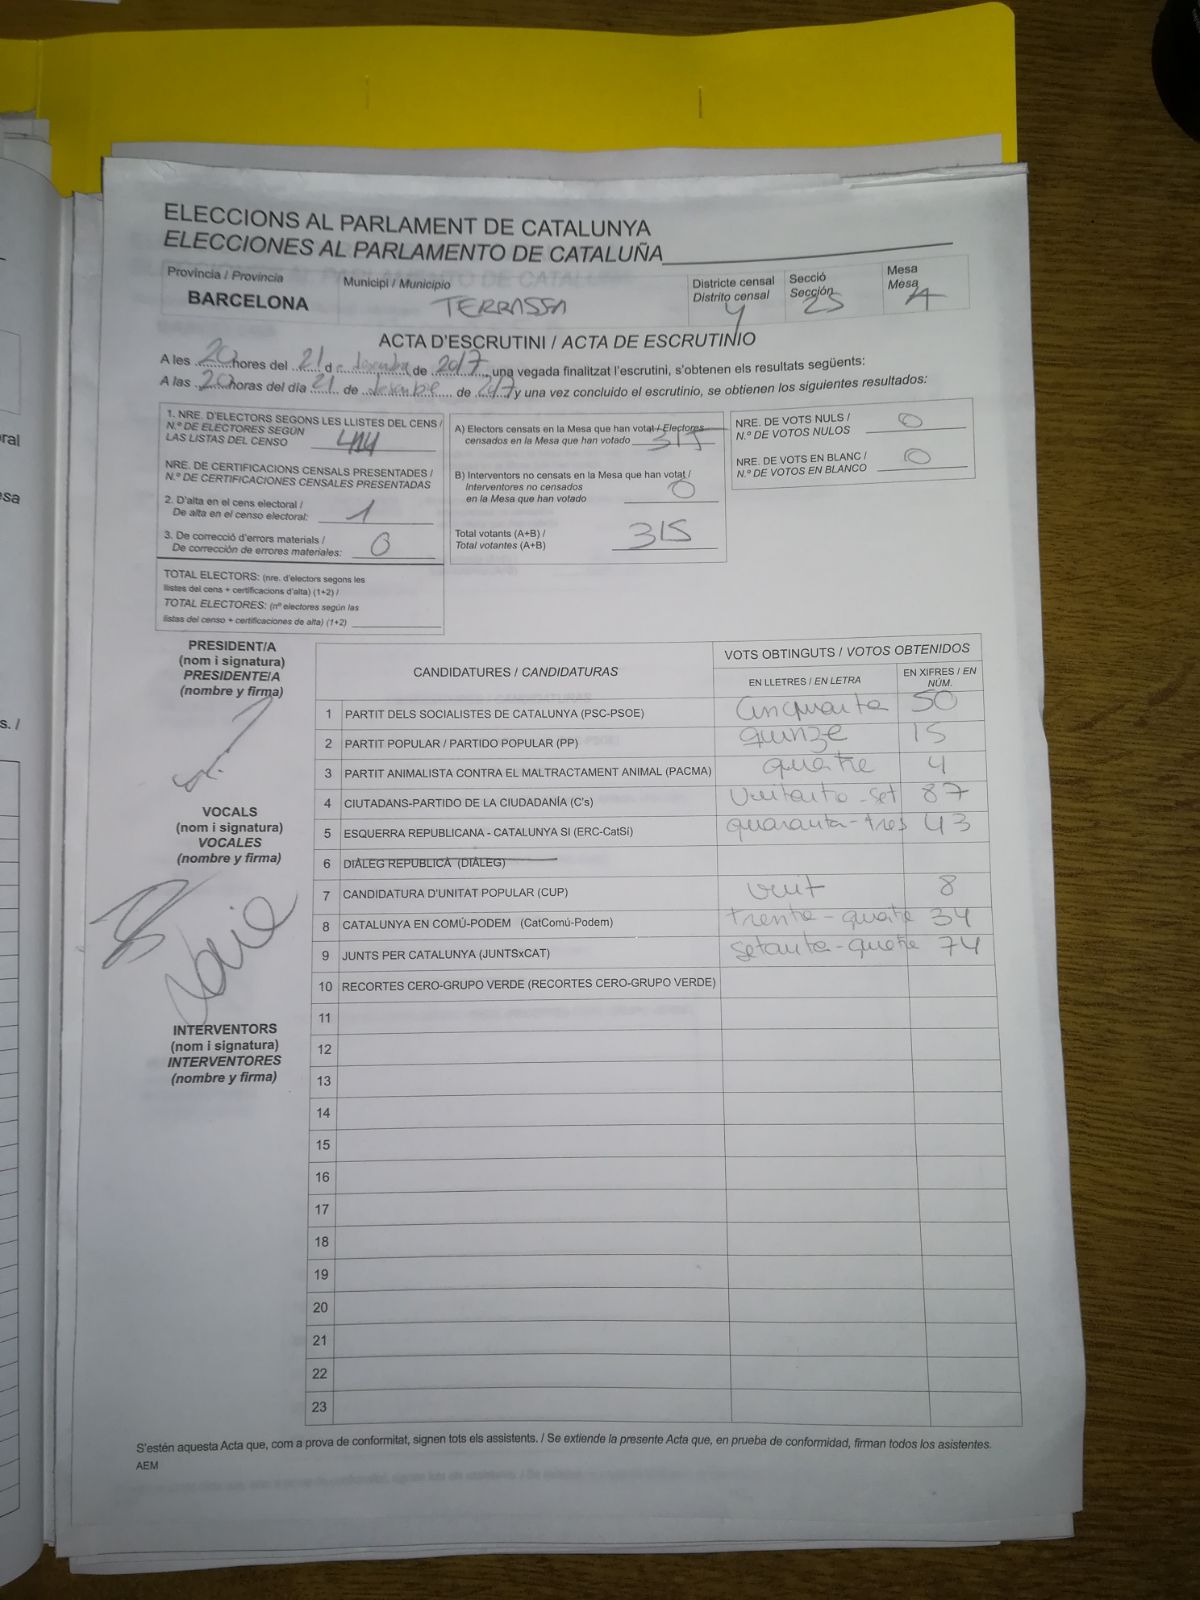 ELECCIONS AL PARLAMENT DE CATALUNYA
ELECCIONES AL PARLAMENTO DE CATALUÑA
Província / Provincia
BARCELONA
Municipi / Municipio
TERRASSA
Districte censal
Distrito censal
4
Secció
Sección
25
Mesa
Mesa
A
ACTA D'ESCRUTINI / ACTA DE ESCRUTINIO
A les 20 hores del 21 d e desembre de 2017, una vegada finalitzat l'escrutini, s'obtenen els resultats següents:
A las 20 horas del día 21 de desembre de 2017 y una vez concluido el escrutinio, se obtienen los siguientes resultados:
1. NRE. D'ELECTORS SEGONS LES LLISTES DEL CENS /
N.º DE ELECTORES SEGÚN
LAS LISTAS DEL CENSO 414
NRE. DE CERTIFICACIONS CENSALS PRESENTADES /
N.º DE CERTIFICACIONES CENSALES PRESENTADAS
2. D'alta en el cens electoral /
De alta en el censo electoral: 1
3. De correcció d'errors materials /
De corrección de errores materiales: 0
TOTAL ELECTORS: (nre. d'electors segons les
llistes del cens + certificacions d'alta) (1+2) /
TOTAL ELECTORES: (nº electores según las
listas del censo + certificaciones de alta) (1+2)
A) Electors censats en la Mesa que han votat / Electores
censados en la Mesa que han votado 315
B) Interventors no censats en la Mesa que han votat /
Interventores no censados
en la Mesa que han votado 0
Total votants (A+B) /
Total votantes (A+B) 315
NRE. DE VOTS NULS /
N.º DE VOTOS NULOS 0
NRE. DE VOTS EN BLANC /
N.º DE VOTOS EN BLANCO 0
PRESIDENT/A
(nom i signatura)
PRESIDENTE/A
(nombre y firma)
VOCALS
(nom i signatura)
VOCALES
(nombre y firma)
INTERVENTORS
(nom i signatura)
INTERVENTORES
(nombre y firma)
CANDIDATURES / CANDIDATURAS
VOTS OBTINGUTS / VOTOS OBTENIDOS
EN LLETRES / EN LETRA
EN XIFRES / EN
NÚM.
1 PARTIT DELS SOCIALISTES DE CATALUNYA (PSC-PSOE) Cinquanta 50
2 PARTIT POPULAR / PARTIDO POPULAR (PP) quinze 15
3 PARTIT ANIMALISTA CONTRA EL MALTRACTAMENT ANIMAL (PACMA) quatre 4
4 CIUTADANS-PARTIDO DE LA CIUDADANÍA (C's) Vuitanta-set 87
5 ESQUERRA REPUBLICANA - CATALUNYA SI (ERC-CatSí) quaranta-tres 43
6 DIÀLEG REPUBLICÀ (DIÀLEG)
7 CANDIDATURA D'UNITAT POPULAR (CUP) vuit 8
8 CATALUNYA EN COMÚ-PODEM (CatComú-Podem) trenta-quatre 34
9 JUNTS PER CATALUNYA (JUNTSxCAT) setanta-quatre 74
10 RECORTES CERO-GRUPO VERDE (RECORTES CERO-GRUPO VERDE)
11
12
13
14
15
16
17
18
19
20
21
22
23
S'estén aquesta Acta que, com a prova de conformitat, signen tots els assistents. / Se extiende la presente Acta que, en prueba de conformidad, firman todos los asistentes.
AEM